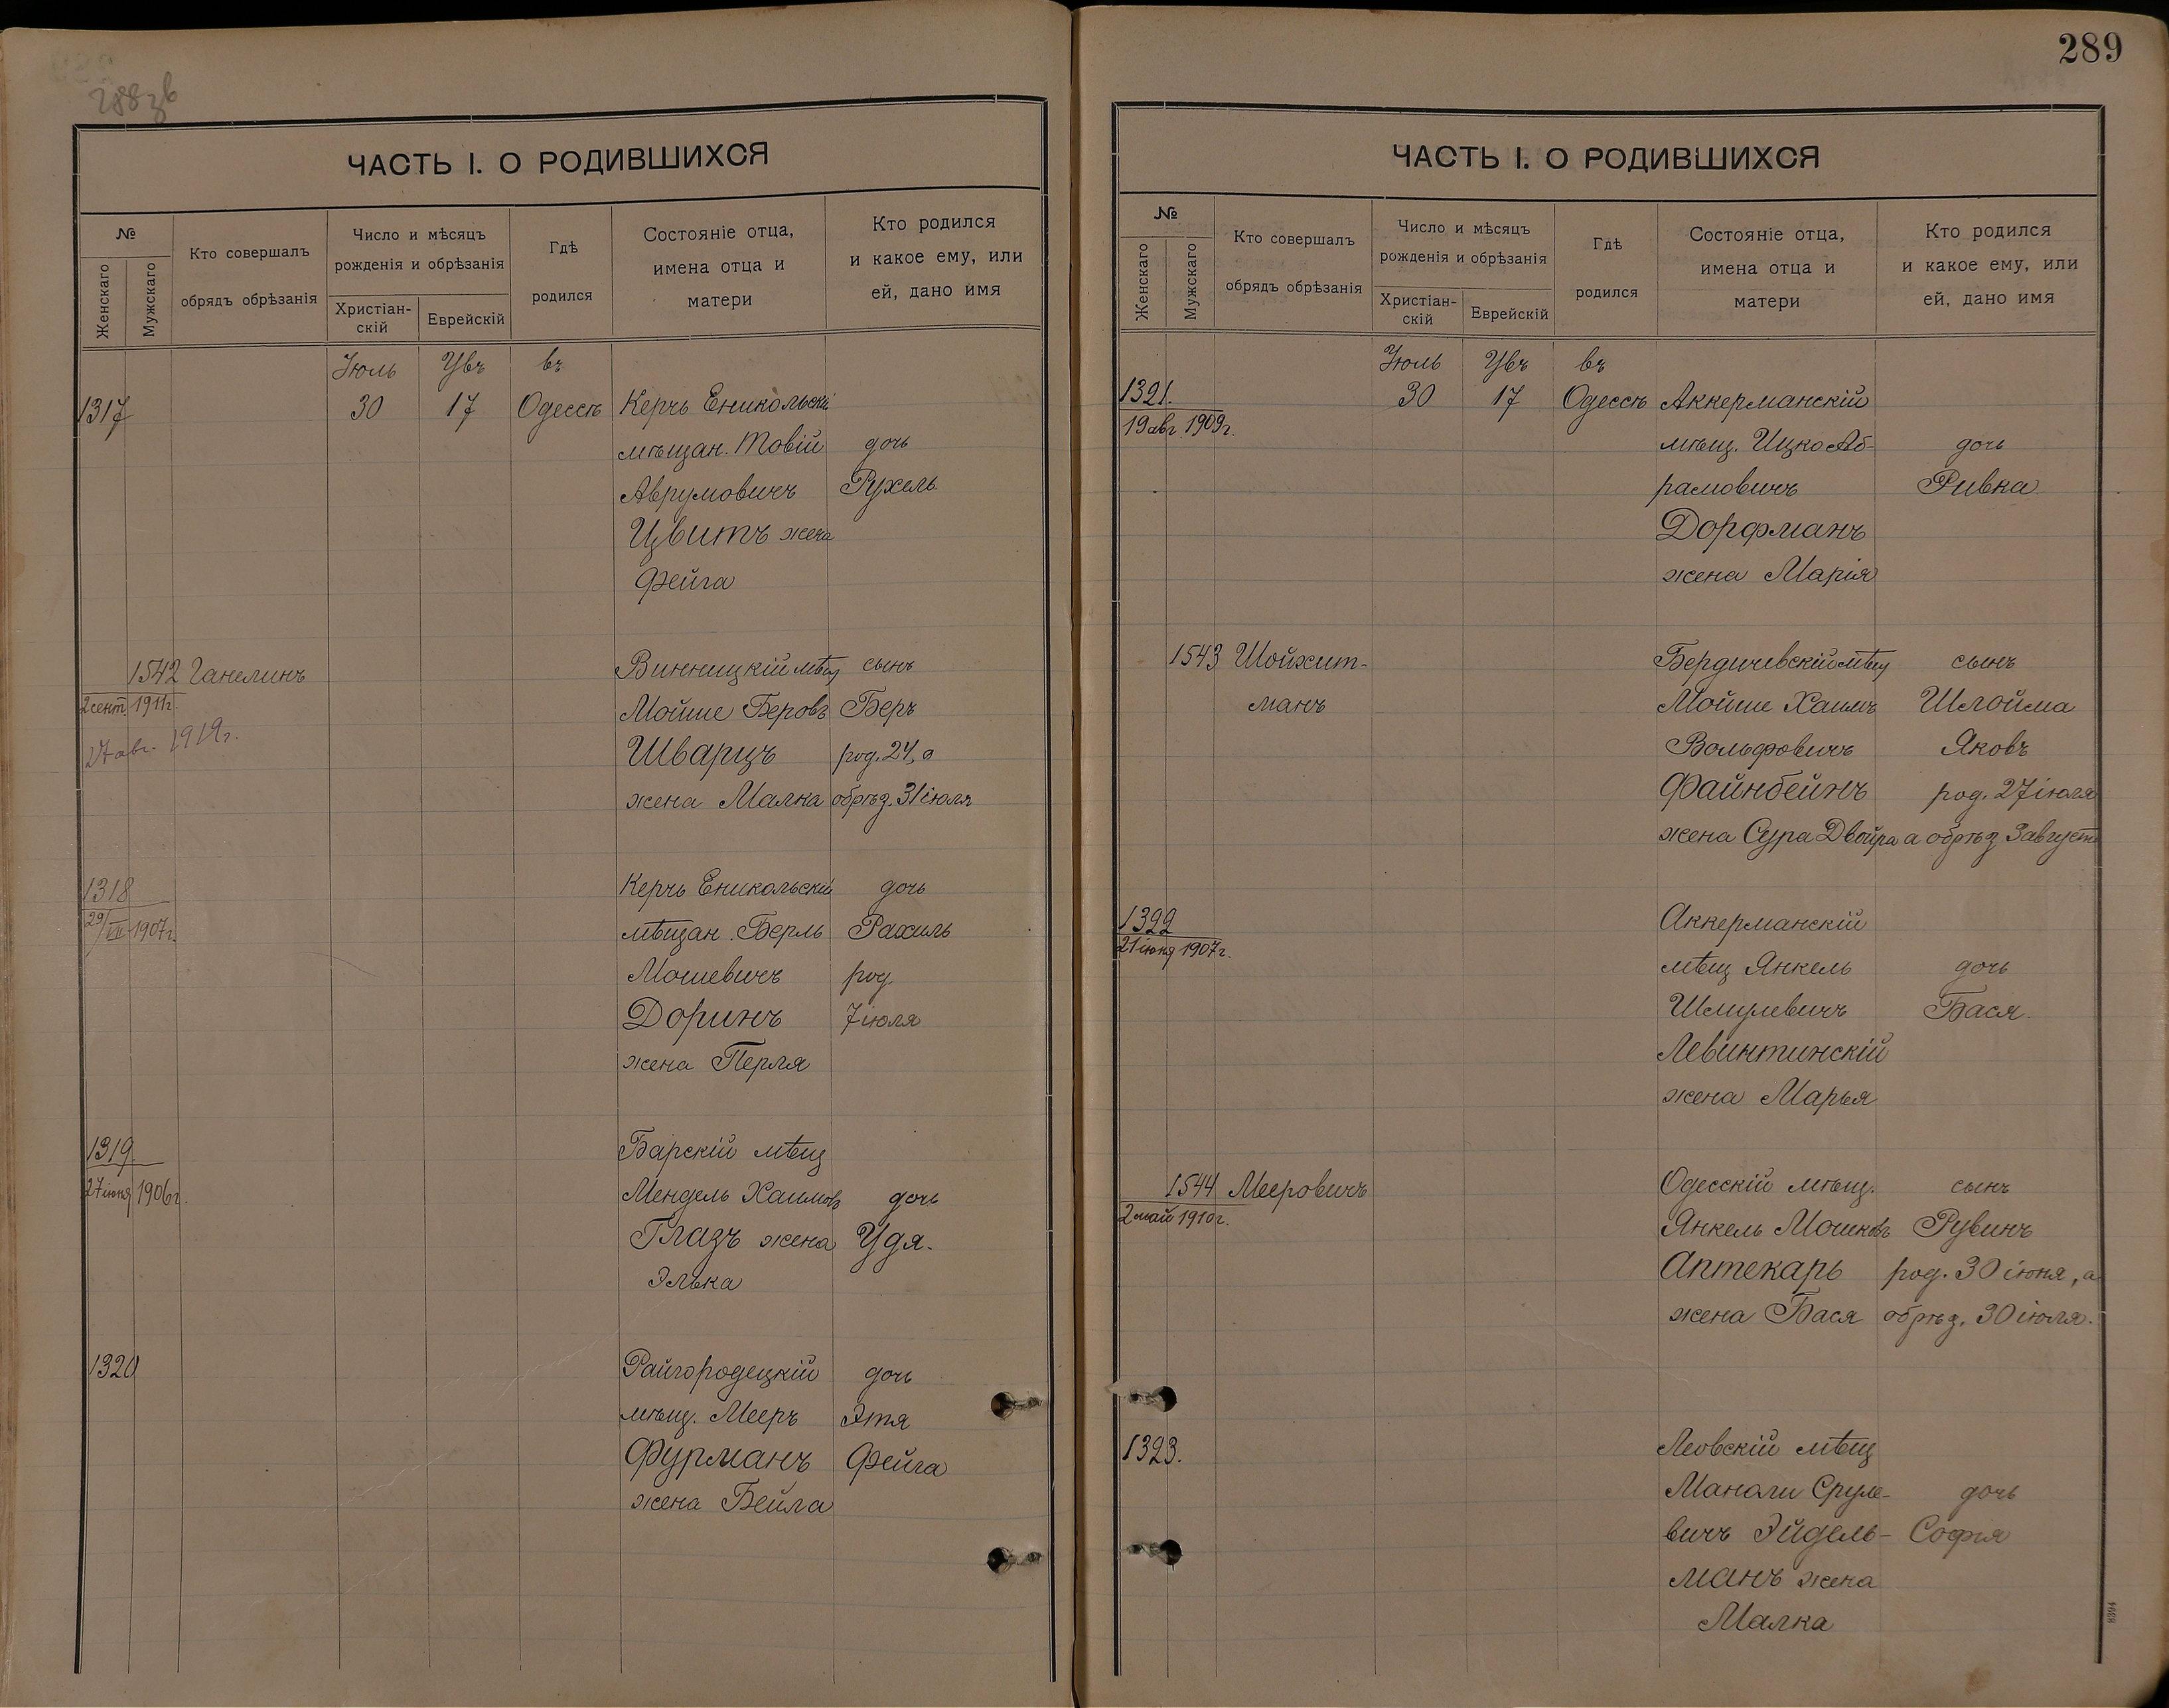 288 зв
ЧАСТЬ I. О РОДИВШИХСЯ
№
Женскаго
Мужскаго
Кто совершалъ
обрядъ обрѣзанія
Число и мѣсяцъ
рожденія и обрѣзанія
Христіан-
скій
Еврейскій
Гдѣ
родился
Состояніе отца,
имена отца и
матери
Кто родился
и какое ему, или
ей, дано имя
Іюль Увъ въ
1317 30 17 Одессѣ Керчь Еникольскій
мѣщан. Товій дочь
Аврумовичъ Рухель
Цвитъ жена
Фейга
1542 Ганелинъ Винницкій мѣщ сынъ
2 сент. 1911г. Мойше Беровъ Беръ
27 авг. 1919г. Шварцъ род. 24, а
жена Малка обрѣз. 31 іюля
1318 Керчь Еникольскій дочь
29/VII 1907г. мѣщан. Берль Рахиль
Мошевичъ род.
Доринъ 7 іюля
жена Перля
1319. Барскій мѣщ
27 іюня 1906г. Мендель Хаимовъ дочь
Глазъ жена Удя.
Элька
1320 Райгородецкій дочь
мѣщ. Мееръ Этя
Фурманъ Фейга
жена Бейла
289
ЧАСТЬ I. О РОДИВШИХСЯ
№
Женскаго
Мужскаго
Кто совершалъ
обрядъ обрѣзанія
Число и мѣсяцъ
рожденія и обрѣзанія
Христіан-
скій
Еврейскій
Гдѣ
родился
Состояніе отца,
имена отца и
матери
Кто родился
и какое ему, или
ей, дано имя
Іюль Увъ въ
1321. 30 17 Одессѣ Аккерманскій
19 авг. 1909г. мѣщ. Ицко Аб- дочь
рамовичъ Ривка
Дорфманъ
жена Марія
1543 Шойхит- Бердичевскій мѣщ сынъ
манъ Мойше Хаимъ Шлойма
Вольфовичъ Яковъ
Файнбейнъ род. 27 іюля
жена Сура Двойра а обрѣз 3 август
1322 Аккерманскій
21 іюня 1907г. мѣщ Янкель дочь
Шмулевичъ Бася.
Левинтинскій
жена Марья
1544 Мееровичъ Одесскій мѣщ. сынъ
2 май 1910г. Янкель Мошковъ Рувинъ
Аптекарь род. 30 іюня, а
жена Бася обрѣз. 30 іюля.
1323. Леовскій мѣщ
Манали Сруле- дочь
вичъ Эйдель- Софія
манъ жена
Малка
8394